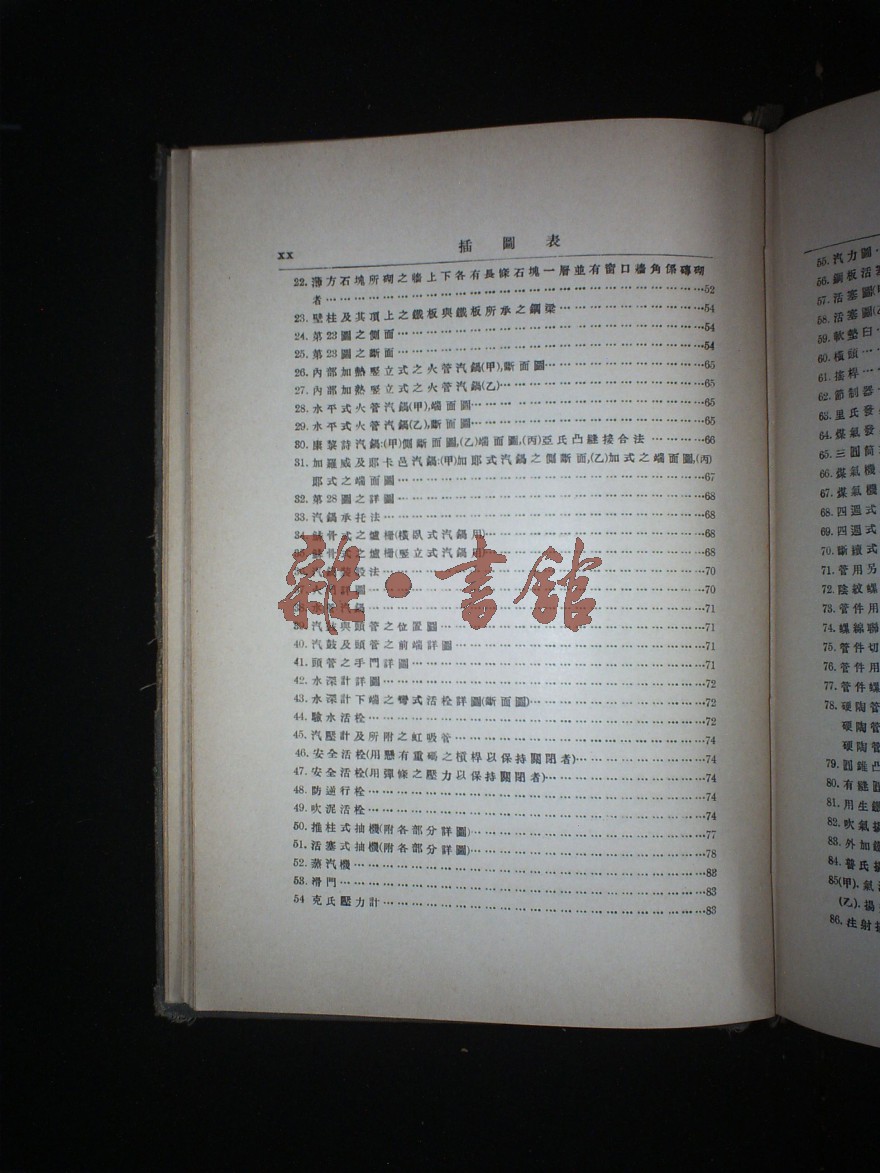 xx 插圖表
22. 薄方石塊所砌之牆上下各有長條石塊一層並有窗口牆角係磚砌
者……52
23. 壁柱及其頂上之鐵板與鐵板所承之鋼梁……54
24. 第23圖之側面……54
25. 第23圖之斷面……54
26. 內部加熱豎立式之火管汽鍋(甲),斷面圖……65
27. 內部加熱豎立式之火管汽鍋(乙)……65
28. 水平式火管汽鍋(甲),端面圖……65
29. 水平式火管汽鍋(乙),斷面圖……65
30. 康黎詩汽鍋:(甲)側斷面圖,(乙)端面圖,(丙)亞氏凸縫接合法……66
31. 加羅威及耶卡邑汽鍋:(甲)加耶式汽鍋之側斷面,(乙)加式之端面圖,(丙)
耶式之端面圖……67
32. 第28圖之詳圖……68
33. 汽鍋承托法……68
骨式之爐柵(橫臥式汽鍋用)……68
骨式之爐柵(豎立式汽鍋用)……68
法……70
詳圖……70
汽鍋……71
與頭管之位置圖……71
40. 汽鼓及頭管之前端詳圖……71
41. 頭管之手門詳圖……71
42. 水深計詳圖……72
43. 水深計下端之彎式活栓詳圖(斷面圖)……72
44. 驗水活栓……72
45. 汽壓計及所附之虹吸管……74
46. 安全活栓(用懸有重碼之槓桿以保持關閉者)……74
47. 安全活栓(用彈條之壓力以保持關閉者)……74
48. 防逆行栓……74
49. 吹泥活栓……74
50. 推柱式抽機(附各部分詳圖)……77
51. 活塞式抽機(附各部分詳圖)……78
52. 蒸汽機……83
53. 滑門……83
54 克氏壓力計……83
雜·書館
55. 汽力圖
56. 鋼板活塞
57. 活塞圖
58. 活塞圖
59. 軟墊曰
60. 橫頭
61. 搖桿
62. 節制器
63. 里氏發
64. 煤氣發
65. 三圓筒
66. 煤氣機
67. 煤氣機
68. 四週式
69. 四週式
70. 斷續式
71. 管用另
72. 陰紋螺
73. 管件用
74. 螺絲聯
75. 管件切
76. 管件用
77. 管件螺
78. 硬陶管
硬陶管
硬陶管
79. 圓錐凸
80. 有縫圓
81. 用生鐵
82. 吹氣揚
83. 外加鐵
84. 氏揚
85(甲). 氣
(乙). 揚
86. 注射